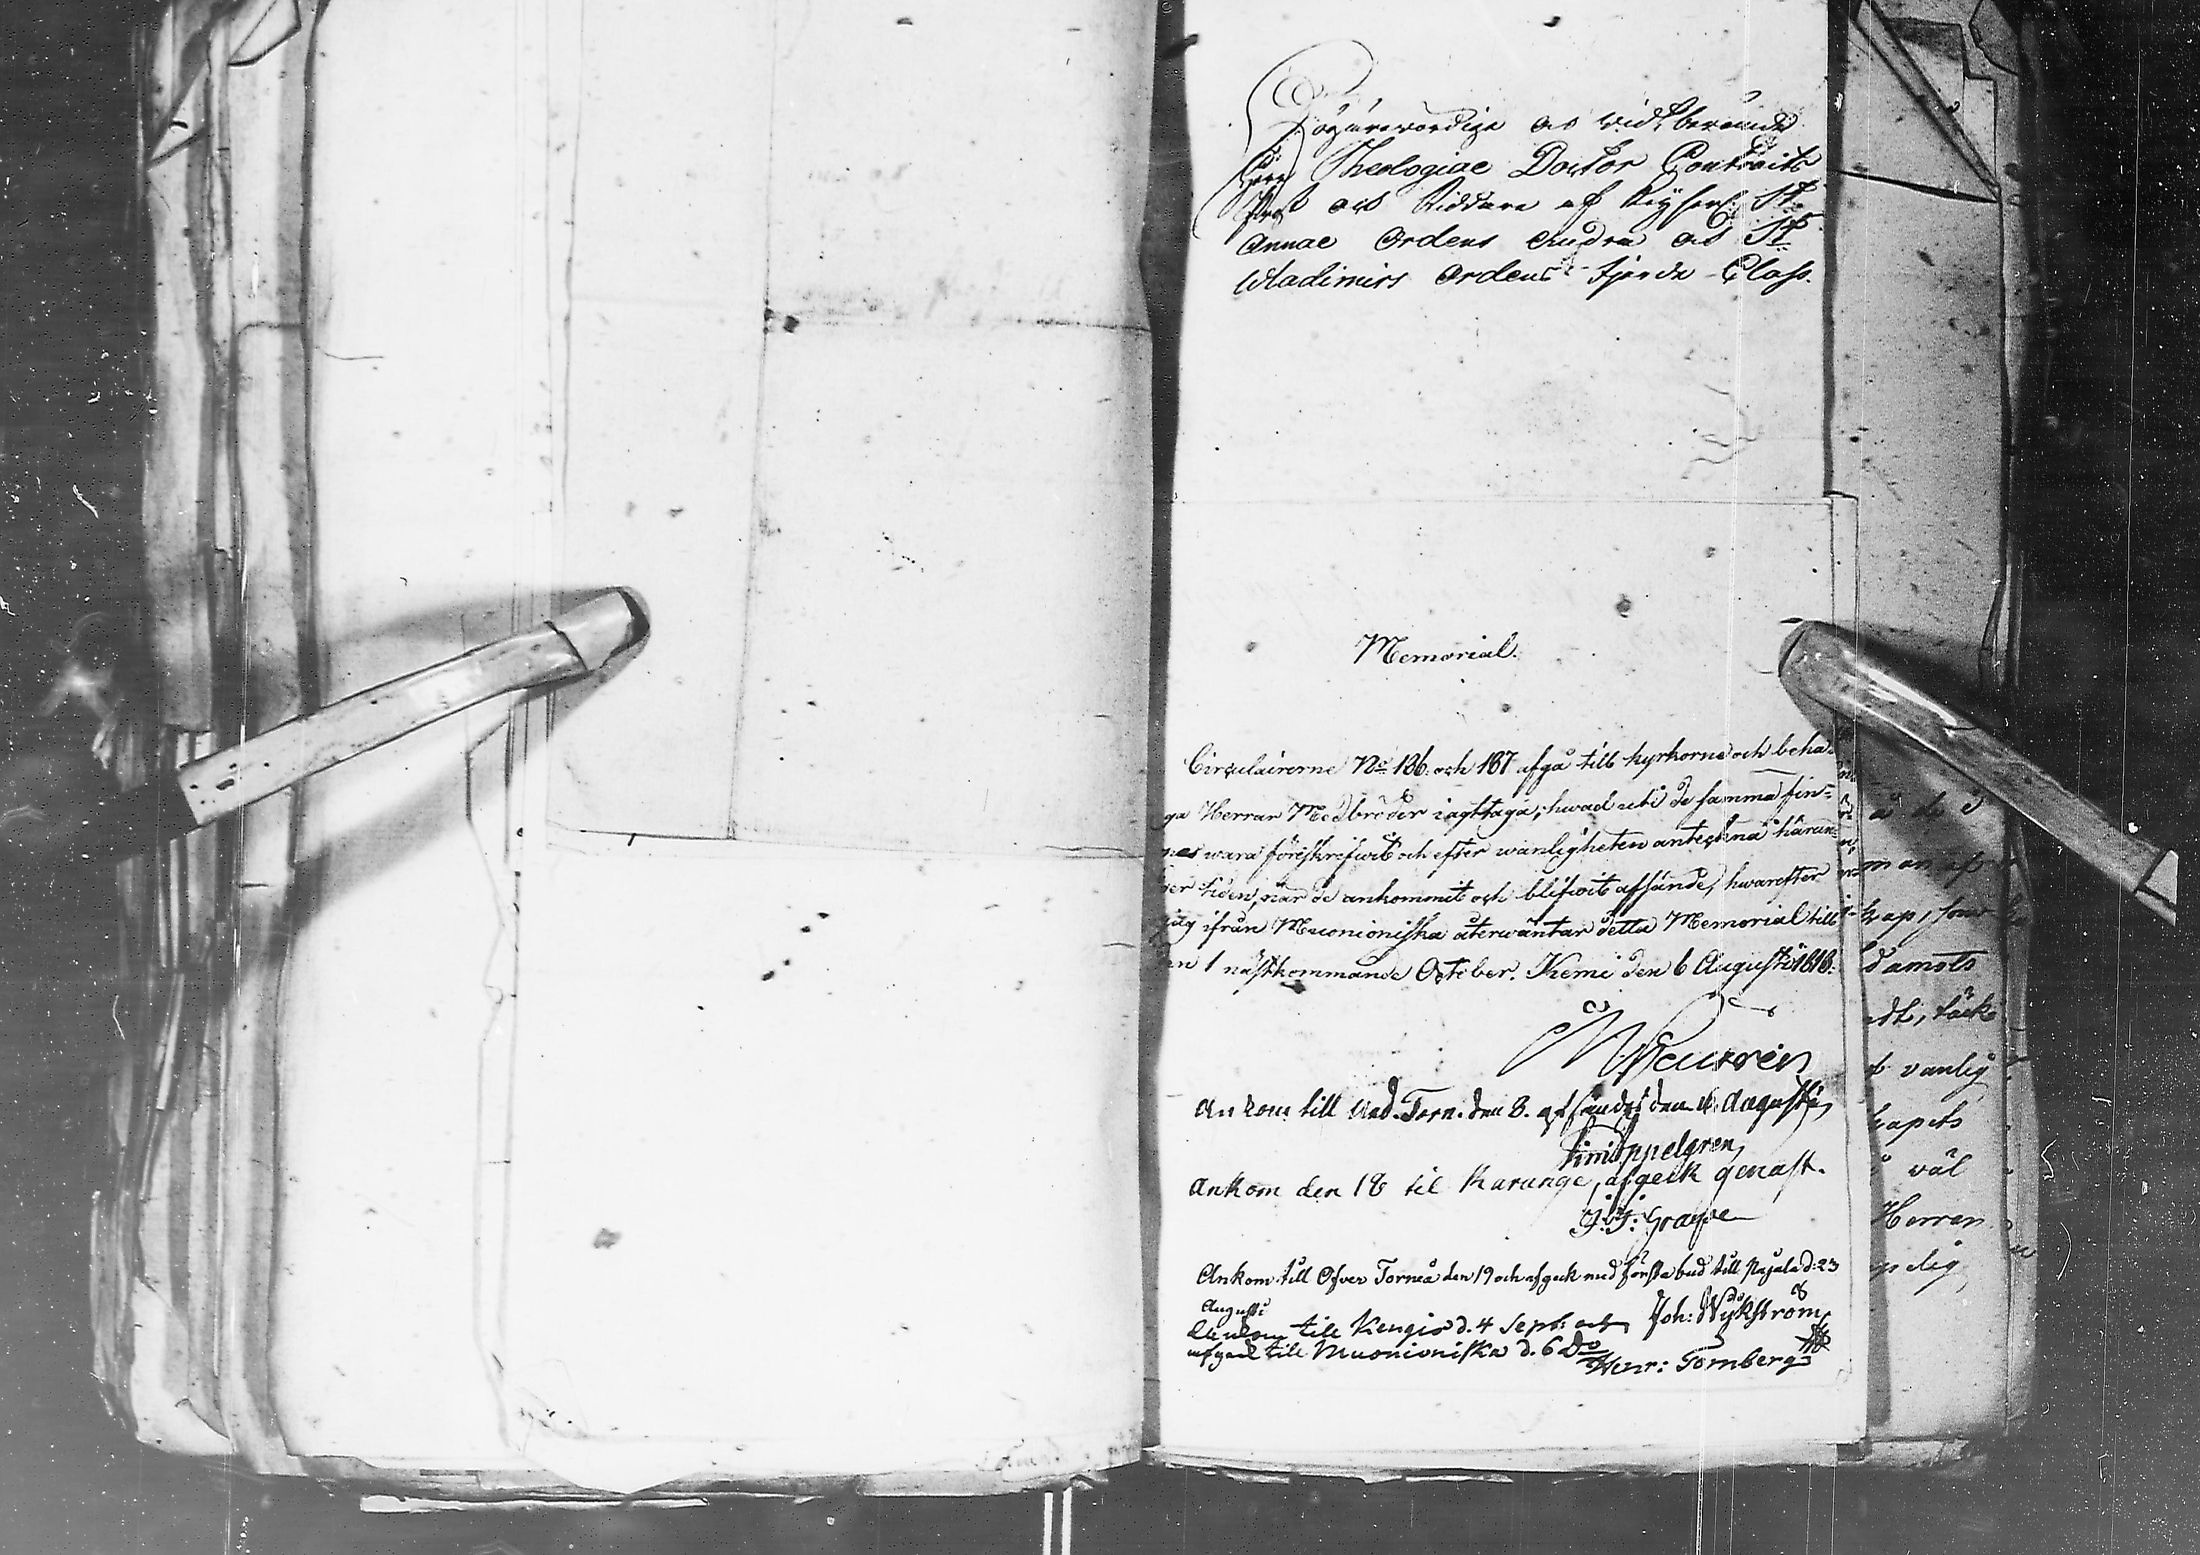 Högärevördige och Vidtberömde
Herr Theologiae Doctor Contracts
Prost och Riddare af Keyserl. St.
Annae Ordens Andra och St.
Wladimirs Ordens fjerde Class.
Memorial.
Circulairerne No 186. och 187 afgå till kyrkorne och beha-
ga Herrar Medbröder iagttaga, hwad uti de samma fin-
nes wara föreskrifwit och efter wanligheten anteckna härun-
der tiden, när de ankommit och blifwit afsände, hwarefter
jag ifrån Muonioniska återwäntar detta Memorial till
den 1 nästkommande October. Kemi den 6 Augusti 1818.
Ankom till Ned. Torn. den 8. afsändes den 11. Augusti,
Appelgren
Ankom den 18 til Karungi, afgeck genast.
J. J: Grape
Ankom till Öfver Torneå den 19 och afgeck med första bud till Pajala d: 23
Augusti Joh: Wykström
Ankom till Kengis d. 4 Sept: och
afgeck till Muonioniska d. 6 Do
Henr: Fornberg
å de
man af
kap, som
damots
edt, täck
t vanlig
kapets
å väl
Herren
pelig